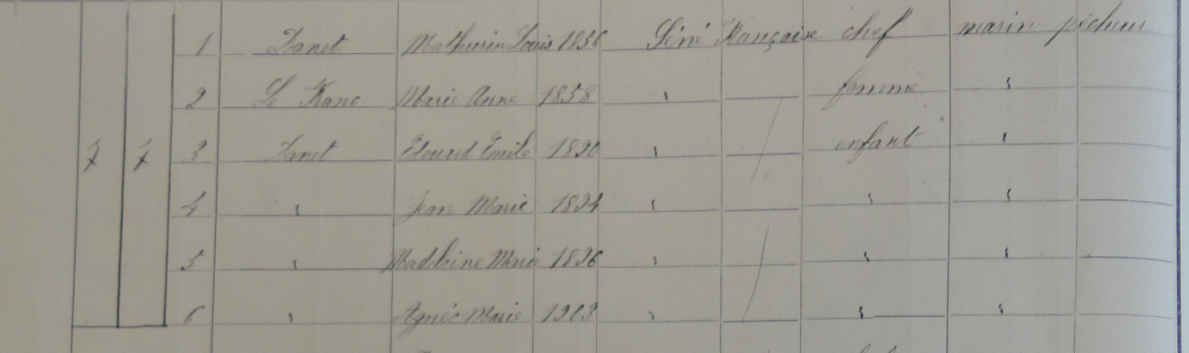 1 Danet Mathurin Louis 1856 Séné Française chef marin pêcheur
2 Le Franc Marie Anne 1858 " femme "
7 7 3 Danet Edouard Emile 1890 " enfant "
4 " Jean Marie 1894 " " "
5 " Madeleine Marie 1896 " " "
6 " Agnès Marie " " "